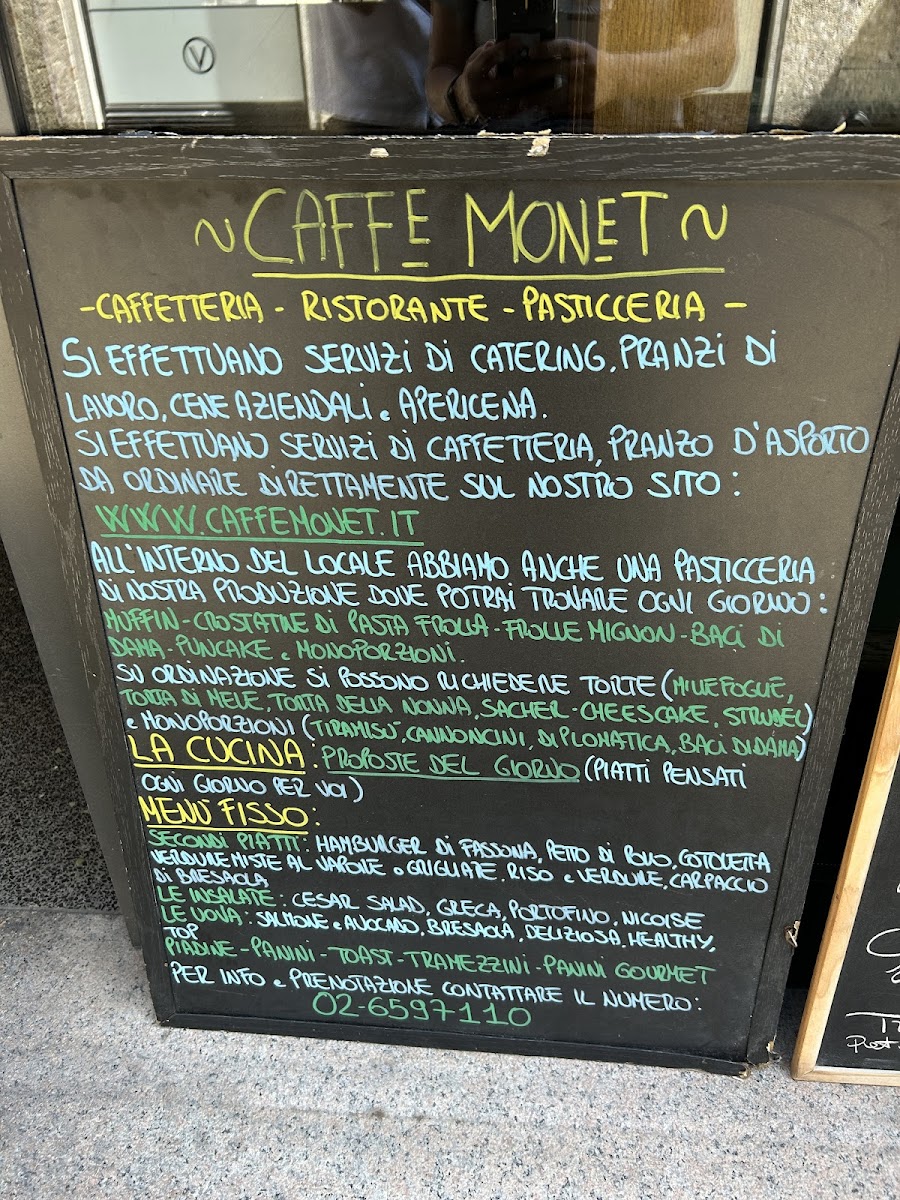 ~ CAFFE MONET ~
- CAFFETTERIA - RISTORANTE - PASTICCERIA -
SI EFFETTUANO SERVIZI DI CATERING, PRANZI DI
LAVORO, CENE AZIENDALI e APERICENA.
SI EFFETTUANO SERVIZI DI CAFFETTERIA, PRANZO D'ASPORTO
DA ORDINARE DIRETTAMENTE SUL NOSTRO SITO:
WWW.CAFFEMONET.IT
ALL'INTERNO DEL LOCALE ABBIAMO ANCHE UNA PASTICCERIA
DI NOSTRA PRODUZIONE DOVE POTRAI TROVARE OGNI GIORNO:
MUFFIN - CROSTATINE DI PASTA FROLLA - FROLLE MIGNON - BACI DI
DAMA - PUNCAKE e MONOPORZIONI.
SU ORDINAZIONE SI POSSONO RICHIEDERE TORTE (MILLEFOGLIE,
TORTA DI MELE, TORTA DELLA NONNA, SACHER - CHEESCAKE, STRUDEL)
e MONOPORZIONI (TIRAMISÙ, CANNONCINI, DIPLOMATICA, BACI DI DAMA)
LA CUCINA: PROPOSTE DEL GIORNO (PIATTI PENSATI
OGNI GIORNO PER VOI)
MENÙ FISSO:
SECONDI PIATTI: HAMBURGER DI FASSONA, PETTO DI POLLO, COTOLETTA
VERDURE MISTE AL VAPORE o GRIGLIATE, RISO e VERDURE, CARPACCIO
DI BRESAOLA
LE INSALATE: CESAR SALAD, GRECA, PORTOFINO, NICOISE
LE UOVA: SALMONE e AVOCADO, BRESAOLA, DELIZIOSA, HEALTHY,
TOP
PIADINE - PANINI - TOAST - TRAMEZZINI - PANINI GOURMET
PER INFO e PRENOTAZIONE CONTATTARE IL NUMERO:
02-6597110